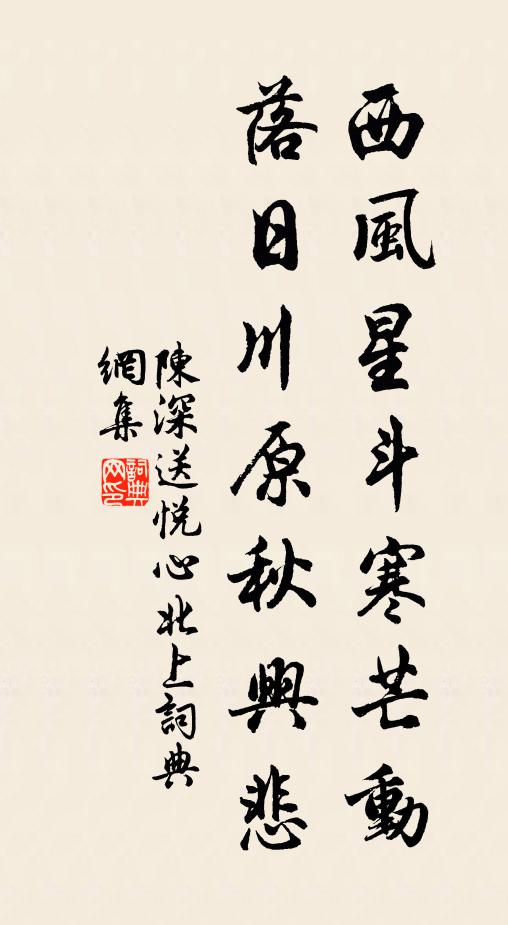 西風星斗寒芒動
落日川原秋興悲
陳深送悅心北上詞典
網集
詞典网印